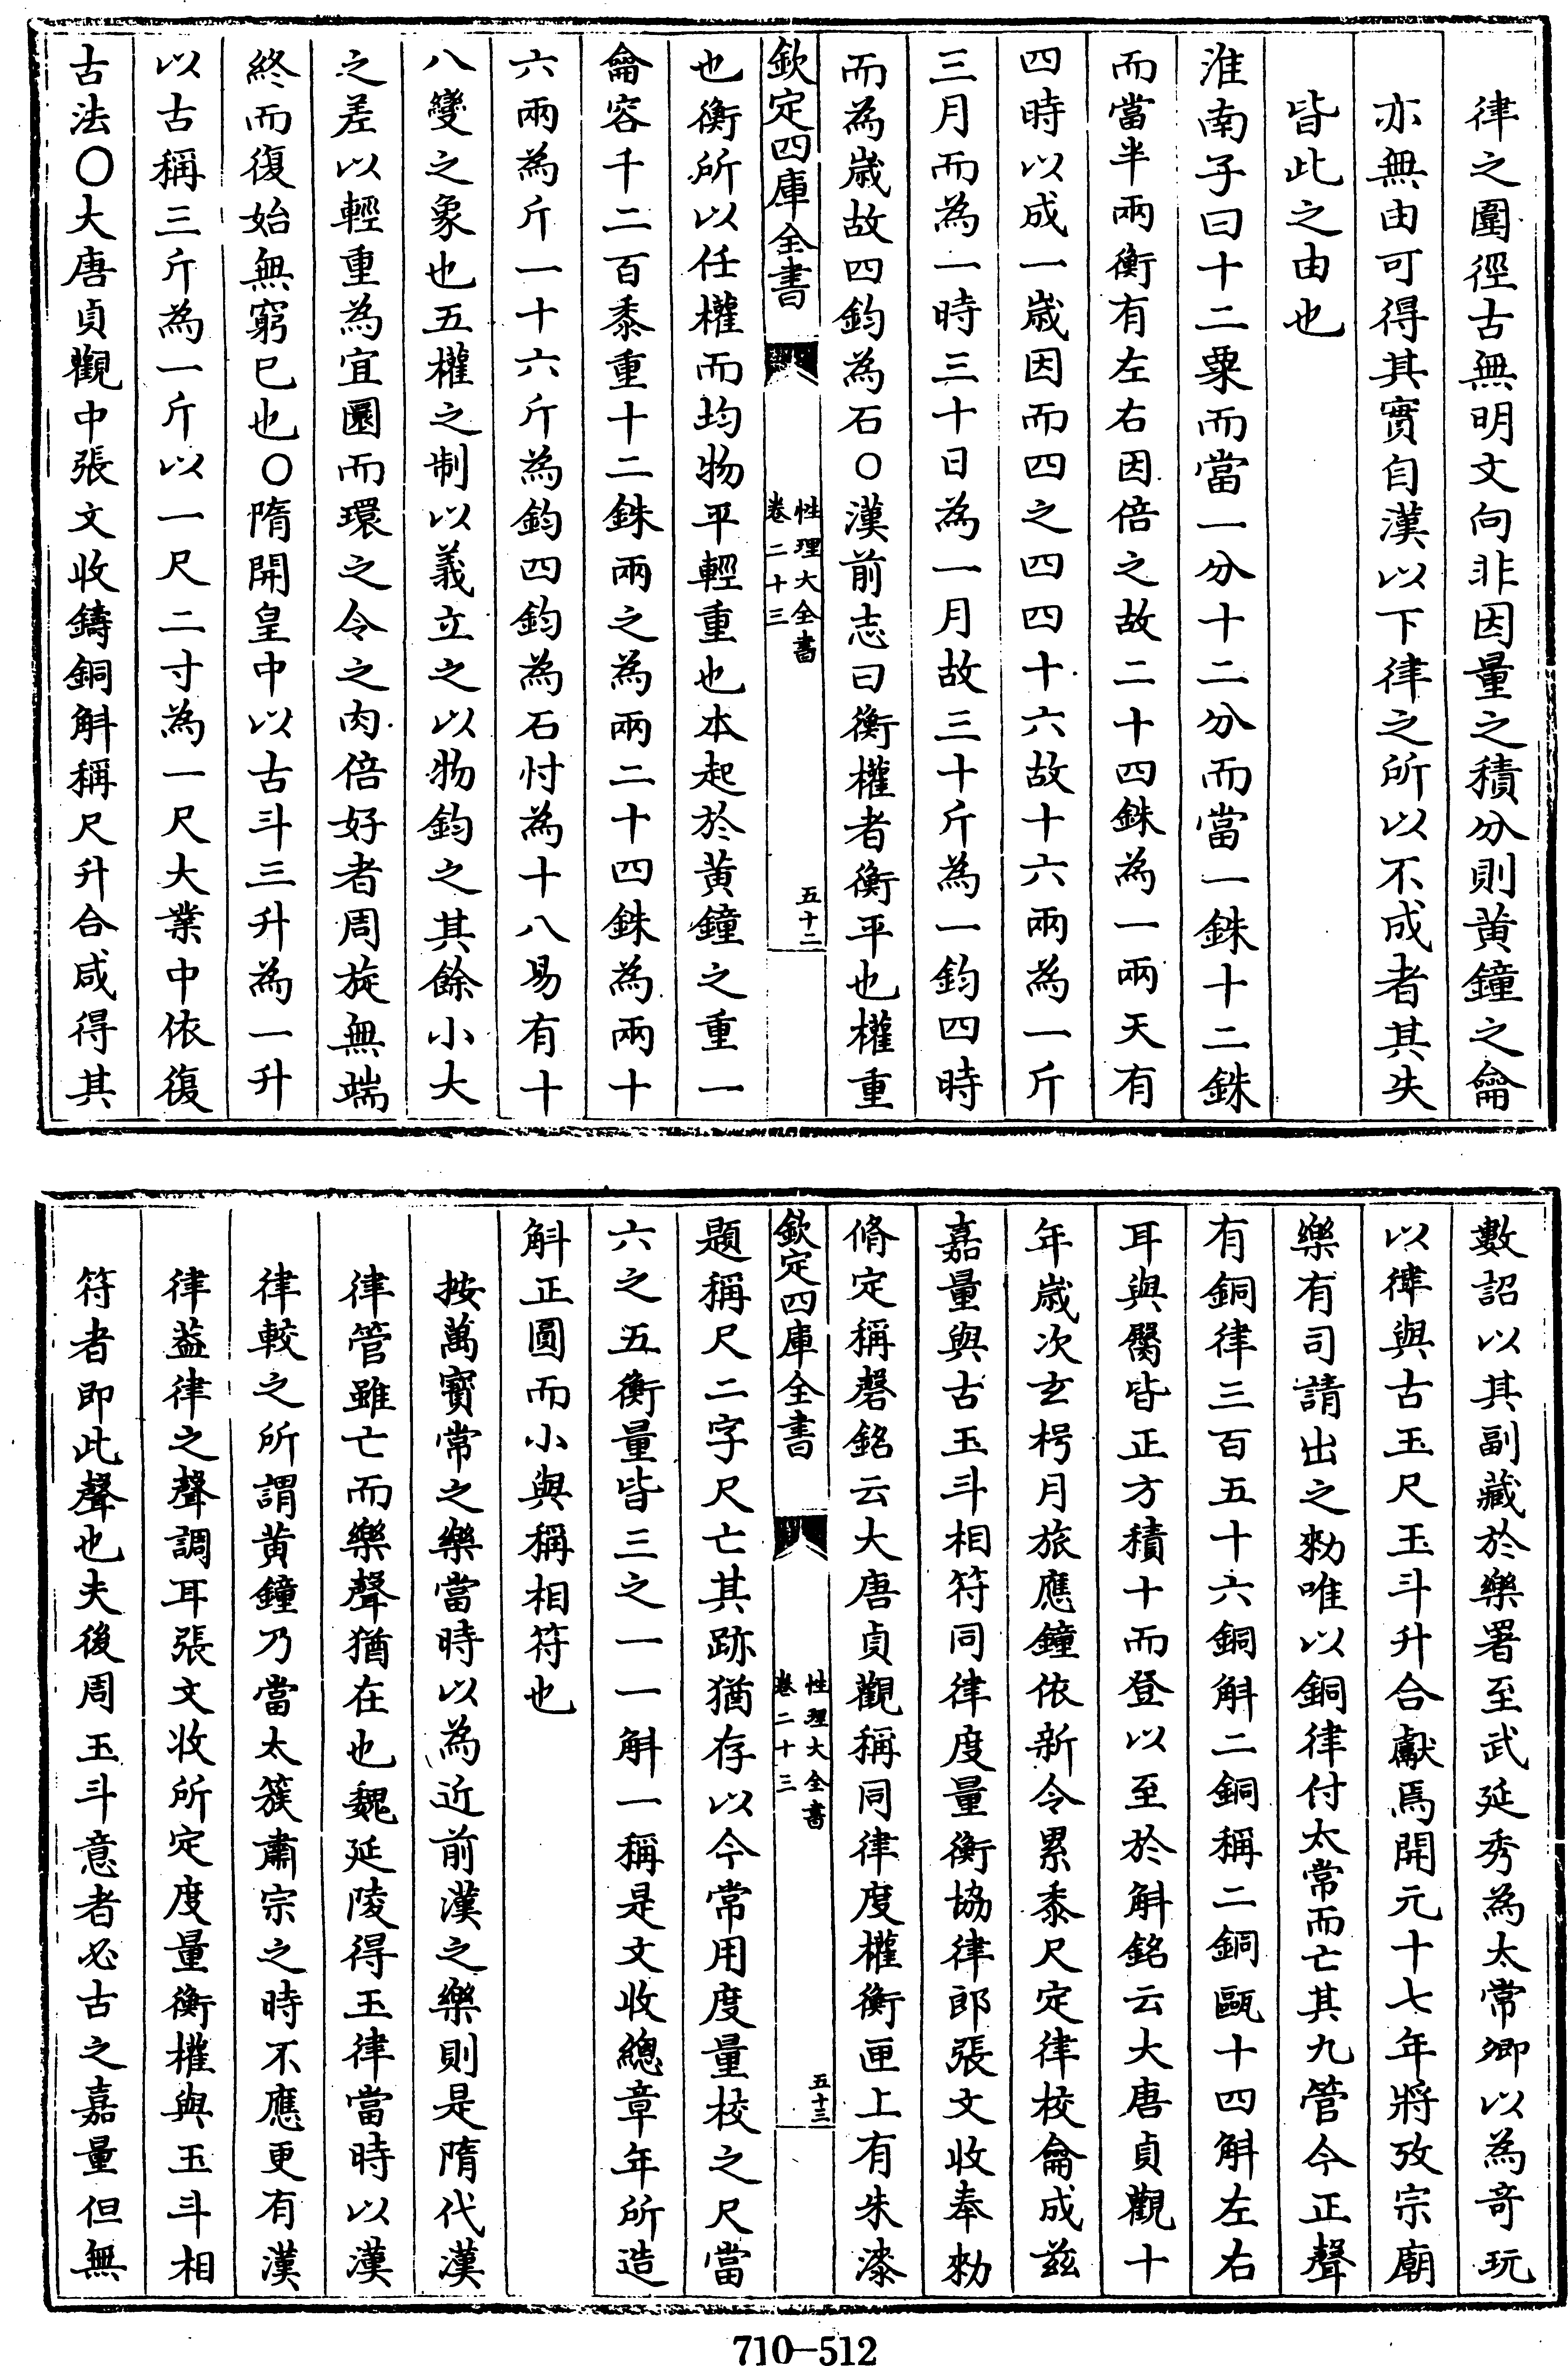 律之圍徑古無明文向非因量之積分則黄鐘之龠
亦無由可得其實自漢以下律之所以不成者其失
皆此之由也
淮南子曰十二粟而當一分十二分而當一銖十二銖
而當半兩衡有左右因倍之故二十四銖為一兩天有
四時以成一歲因而四之四四十六故十六兩為一斤
三月而為一時三十日為一月故三十斤為一鈞四時
而為歲故四鈞為石○漢前志曰衡權者衡平也權重
欽定四庫全書
性理大全書
卷二十三
五十二
也衡所以任權而均物平輕重也本起於黄鐘之重一
龠容千二百黍重十二銖兩之為兩二十四銖為兩十
六兩為斤一十六斤為鈞四鈞為石忖為十八易有十
八變之象也五權之制以義立之以物鈞之其餘小大
之差以輕重為宜圜而環之令之肉倍好者周旋無端
終而復始無窮已也○隋開皇中以古斗三升為一升
以古稱三斤為一斤以一尺二寸為一尺大業中依復
古法○大唐貞觀中張文收鑄銅斛稱尺升合咸得其
數詔以其副藏於樂署至武延秀為太常卿以為竒玩
以律與古玉尺玉斗升合獻焉開元十七年將攷宗廟
樂有司請出之勑唯以銅律付太常而亡其九管今正聲
有銅律三百五十六銅斛二銅稱二銅甌十四斛左右
耳與臋皆正方積十而登以至於斛銘云大唐貞觀十
年歲次玄枵月旅應鐘依新令累黍尺定律校龠成兹
嘉量與古玉斗相符同律度量衡協律郎張文收奉勑
脩定稱磬銘云大唐貞觀稱同律度權衡匣上有朱漆
欽定四庫全書
性理大全書
卷二十三
五十三
題稱尺二字尺亡其跡猶存以今常用度量校之尺當
六之五衡量皆三之一一斛一稱是文收總章年所造
斛正圓而小與稱相符也
按萬寳常之樂當時以為近前漢之樂則是隋代漢
律管雖亡而樂聲猶在也魏延陵得玉律當時以漢
律較之所謂黄鐘乃當太簇肅宗之時不應更有漢
律葢律之聲調耳張文收所定度量衡權與玉斗相
符者即此聲也夫後周玉斗意者必古之嘉量但無
710-512